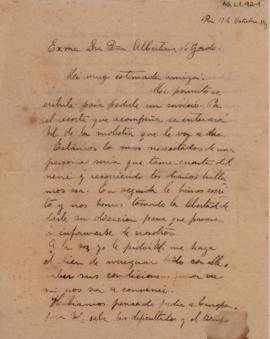 Rio 17 de Octubre
Exma Sra Dña Albertina de Gordo
Mi muy estimada amiga:
Me permito es-
cribirle para pedirle un servicio. Por
el recorte que acompaño se enterará
Vd. de la molestia que le voy a dar.
Estamos lo mas necesitados de una
persona seria que tome cuenta del
nené y recogiendo los
esa. En seguida le hemos escri-
to y nos hemos tomado la libertad de
darle su direccion para que pueda
informarse de nosotros.
Y la vez yo le pido Vd. me haga
el bien de averiguar todo con ella,
saber sus condiciones para ver
si nos va a convenir.
Habiamos pensado pedir a
pero Vd. sabe las dificultades y el tiempo